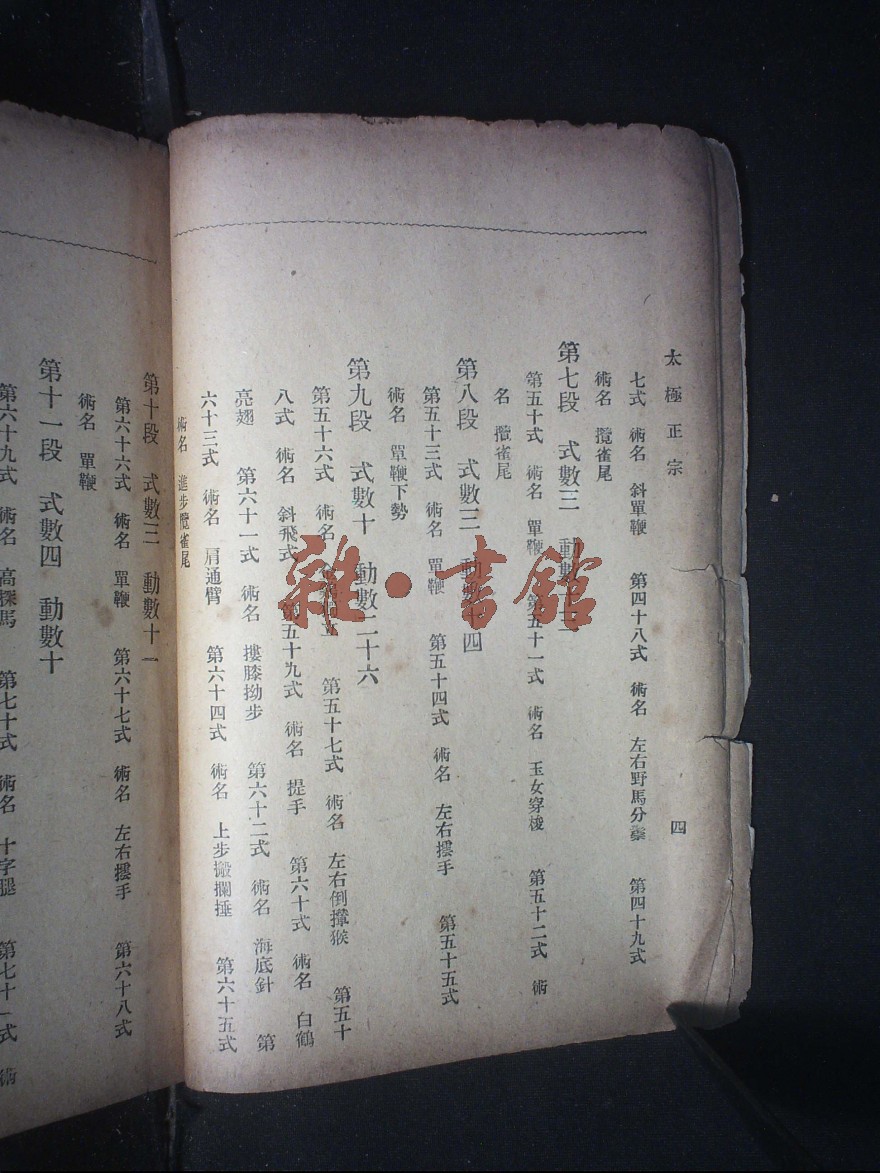 太極正宗
四
七式 術名 斜單鞭 第四十八式 術名 左右野馬分鬃 第四十九式
術名 攬雀尾
第七段 式數三 動數
第五十式 術名 單鞭 第五十一式 術名 玉女穿梭 第五十二式 術
名 攬雀尾
第八段 式數三 動數十四
第五十三式 術名 單鞭 第五十四式 術名 左右擺手 第五十五式
術名 單鞭下勢
第九段 式數十 動數二十六
第五十六式 術名 第五十七式 術名 左右倒攆猴 第五十
八式 術名 斜飛式 第五十九式 術名 提手 第六十式 術名 白鶴
亮翅 第六十一式 術名 摟膝拗步 第六十二式 術名 海底針 第
六十三式 術名 肩通臂 第六十四式 術名 上步搬攔捶 第六十五式
術名 進步攬雀尾
第十段 式數三 動數十一
第六十六式 術名 單鞭 第六十七式 術名 左右擺手 第六十八式
術名 單鞭
第十一段 式數四 動數十
第六十九式 術名 高探馬 第七十式 術名 十字腿 第七十一式 術
雜·書館